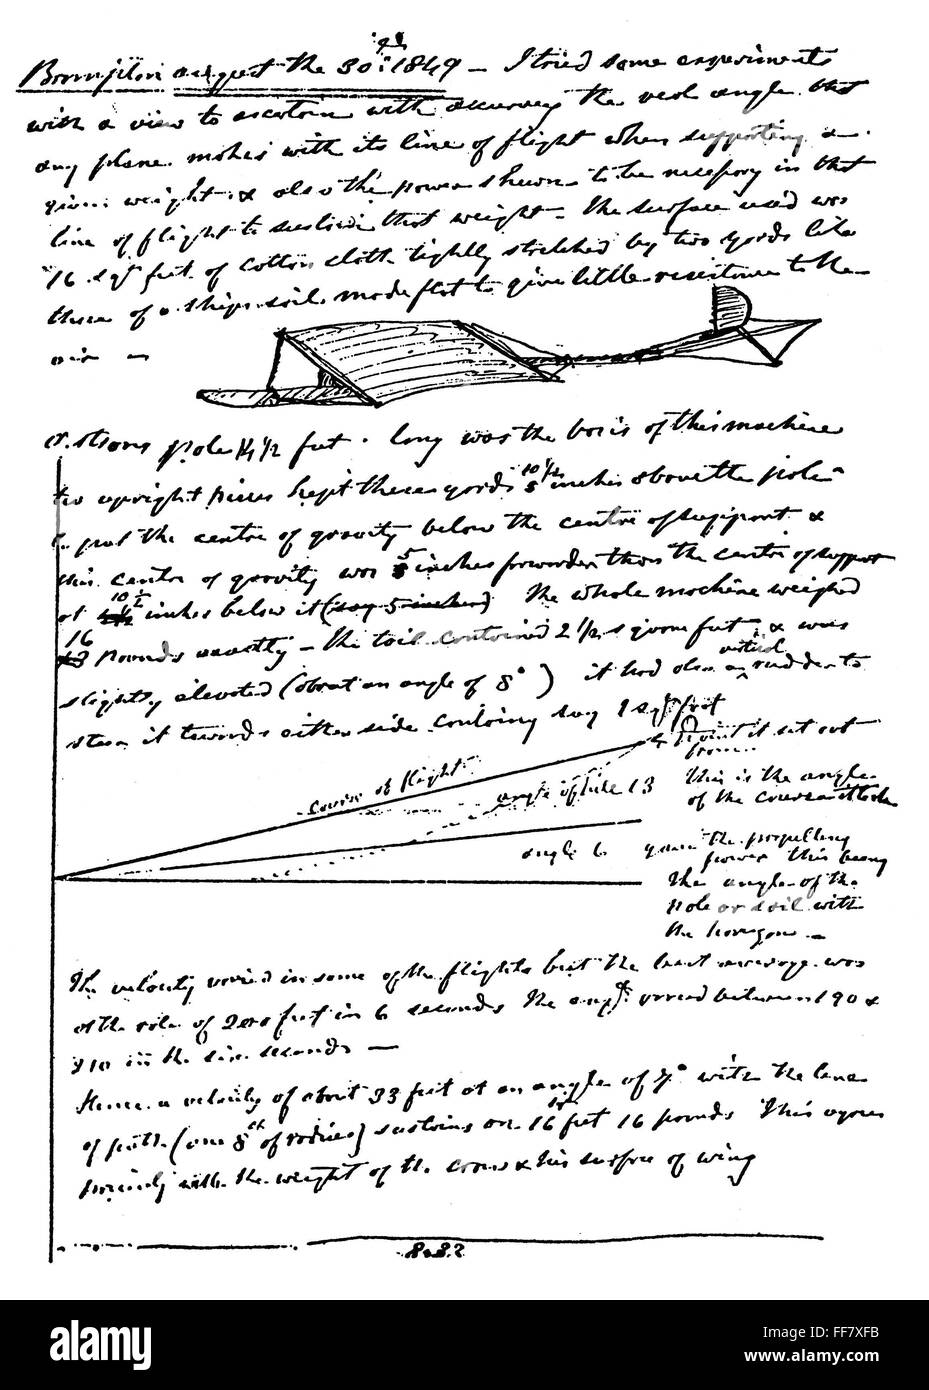 Brompton august the 30: 1849 - I tried some experiments
with a view to ascertain with accuracy the real angle that
any plane makes with its line of flight when supporting a
given weight & also the power shewn to be necessary in that
line of flight to sustain that weight - The surface used was
16 sqr feet of cotton cloth tightly stretched by two yards like
those of a ships sail made flat to give little resistance to the
air -
a strong pole 14 1/2 feet long was the basis of this machine
two upright pieces kept these yards 10 1/2 inches above the pole
to put the centre of gravity below the centre of support &
this centre of gravity was 5 inches forwarder than the centre of support
at 10 1/2 inches below it (say 5 inches) The whole machine weighed
16 pounds exactly - the tail contained 2 1/2 square feet & was
slightly elevated (about an angle of 8°) it had also a vertical rudder to
steer it towards either side containing say 1 sqr foot
point it set out
from
course of flight
angle of 13
This is the angle
of the course
angle 6
the propelling
power this being
the angle of the
pole or sail with
the horizon -
The velocity varied in some of the flights but the best average was
at the rate of 200 feet in 6 seconds the varied between 190 &
210 in the six seconds -
Hence a velocity of about 33 feet at an angle of 7° with the line
of path (one 8th of radius) sustains on 16 feet 16 pounds This agrees
precisely with the weight of the crow & his surface of wing
a alamy stock photo
FF7XFB
www.alamy.com